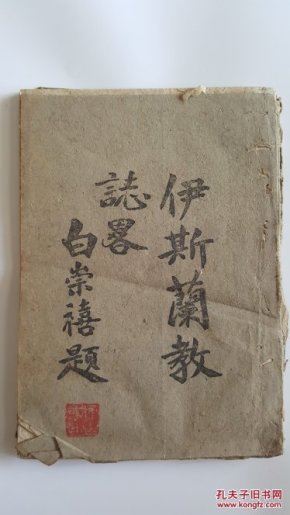 伊斯蘭教
誌畧
白崇禧題
孔夫子旧书网